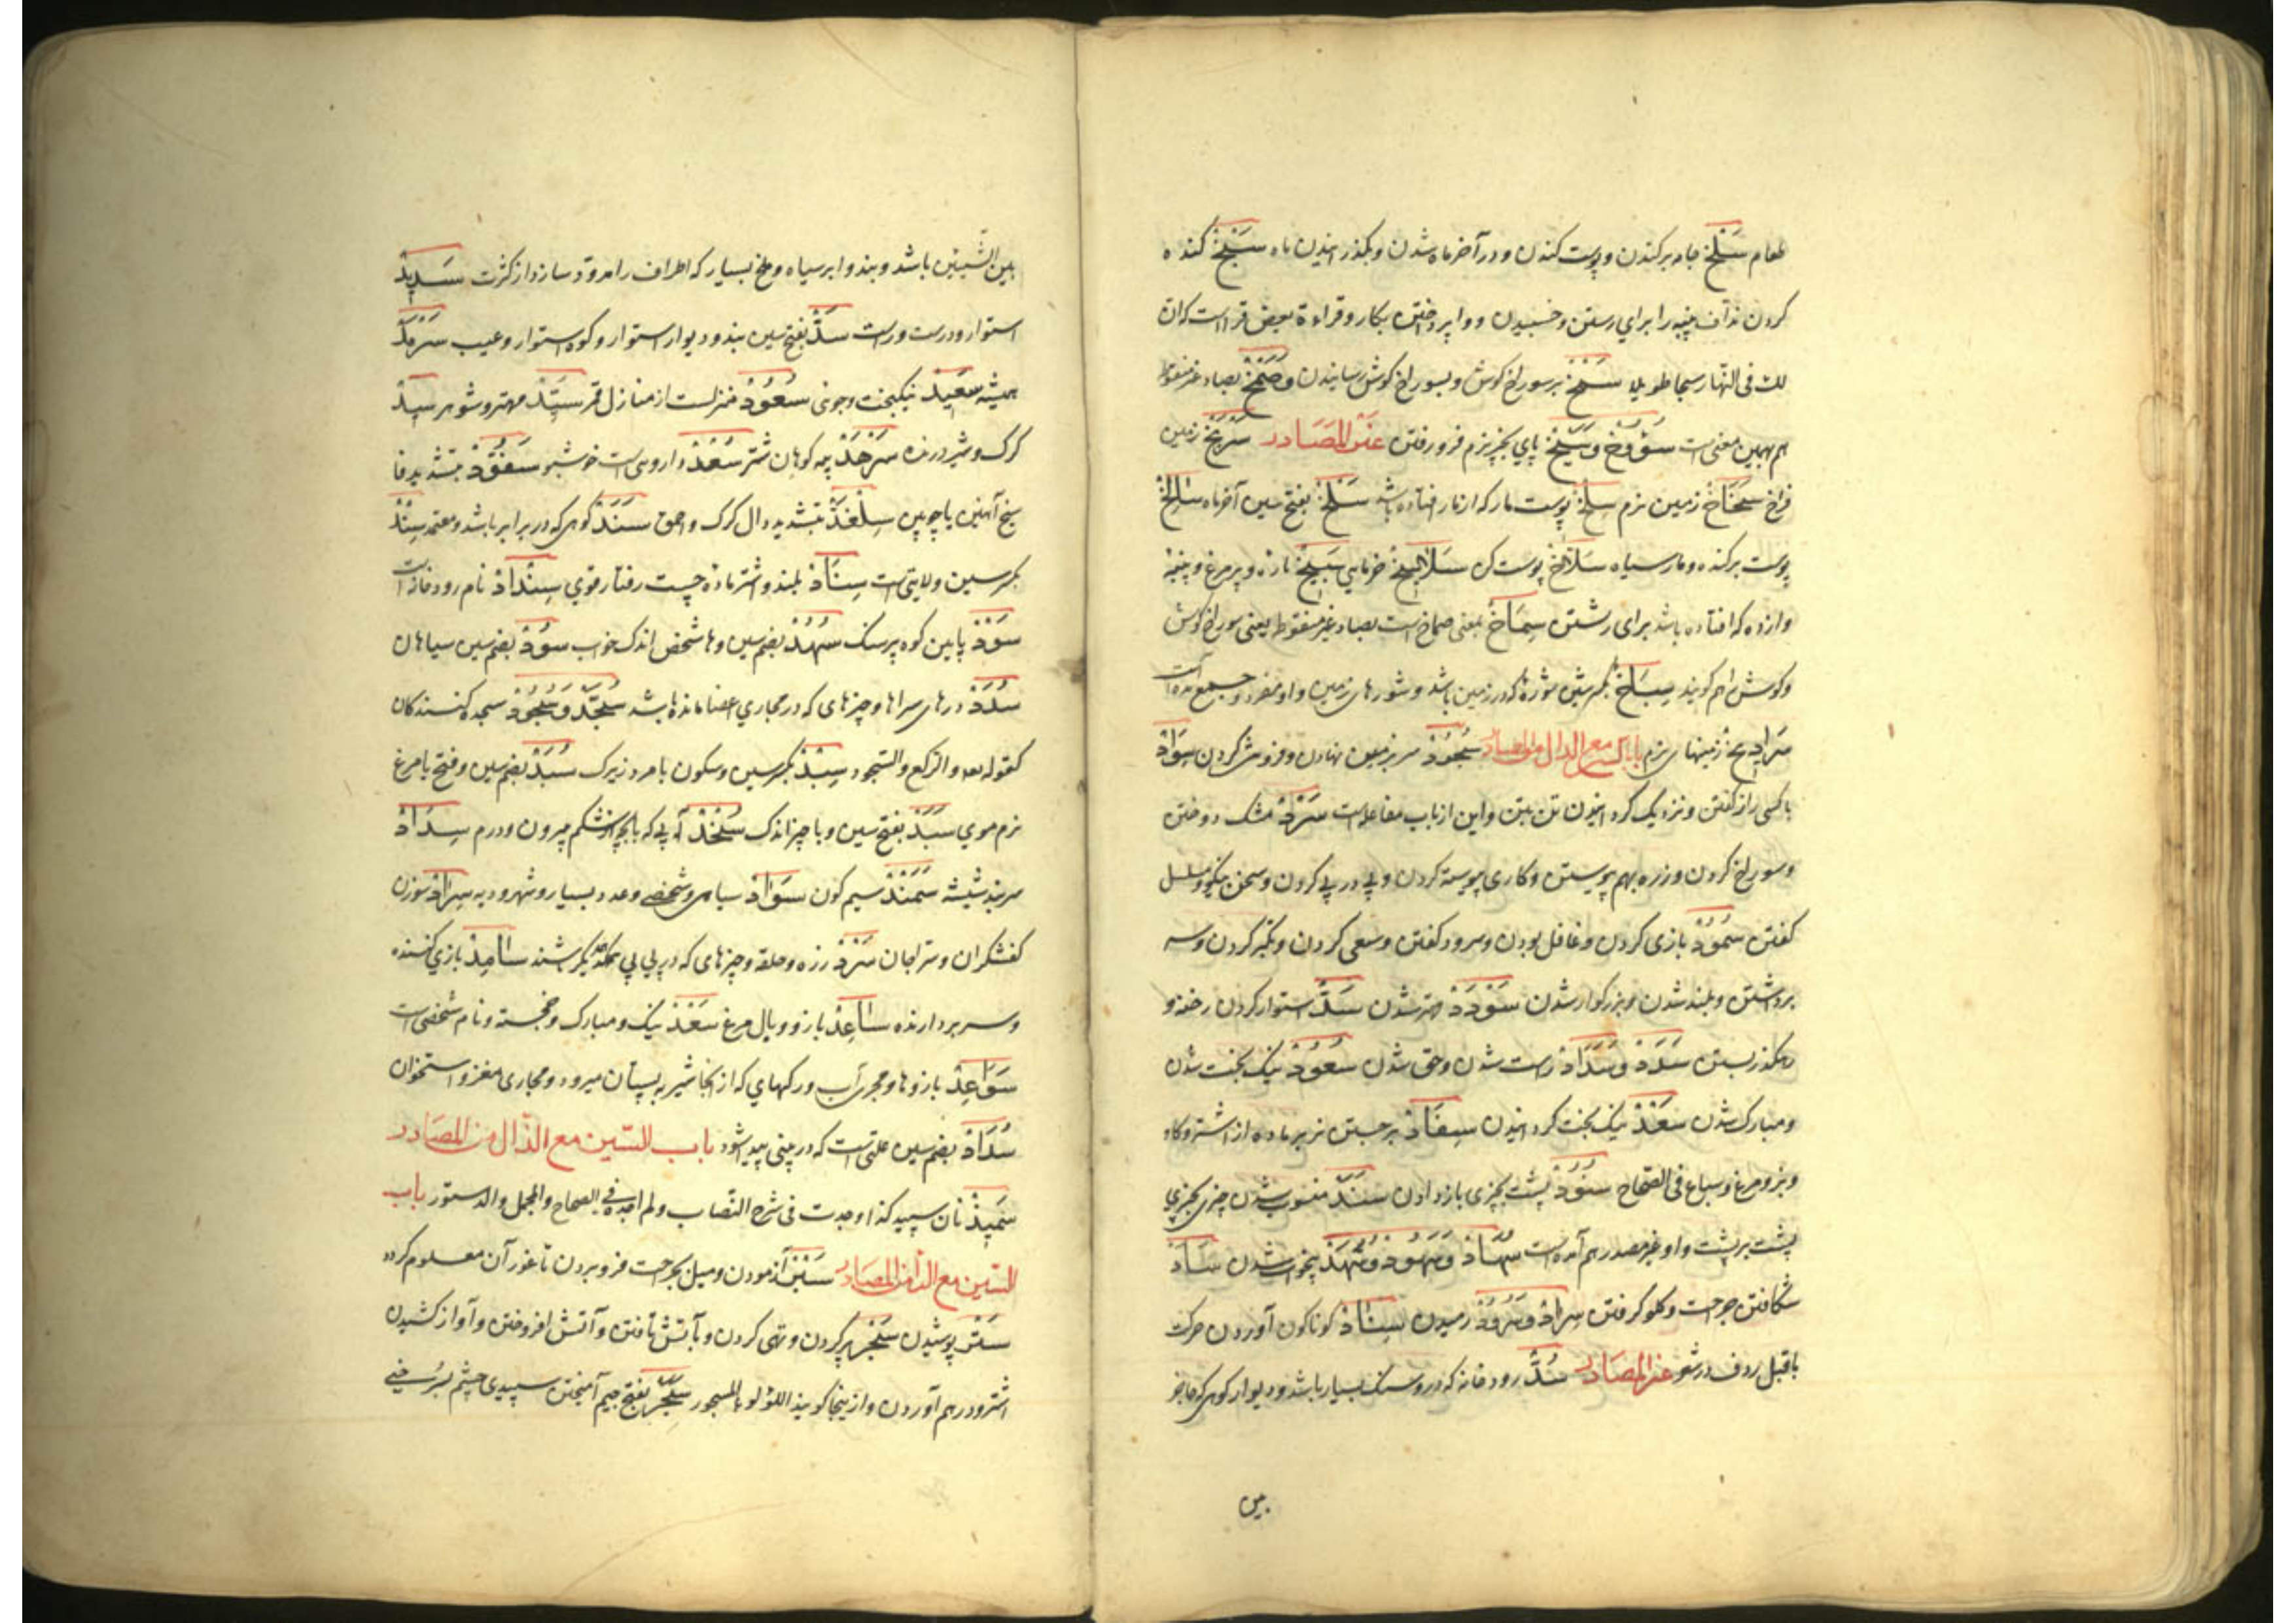 طعام سَلْخْ جامه برکندن و پوست کندن و در آخر ماه شدن و بگذرانیدن ماه سَبْخْ کنده
کردن نداف پنبه را برای رستن و خسبیدن و وا پرداختن بکار و قراءة بعض قرا است که ان
لك فی النهار سبخا طویلا سَمْخْ بر سوراخ کوش و بسوراخ کوش رسانیدن و صَمْخْ بصاد غیر منقوط
هم بهمین معنی است سُوُوخْ و سَیْخْ پای بچیزی نرم فرو رفتن عَنَر المَصَادر سَرْبَخْ زمین
فراخ سَخَاخْ زمین نرم سِلْخْ پوست مار که از مار افتاده باشد سَلْخْ بفتح سین آخر ماه سالِخْ
پوست برکنده و مار سیاه سَلَّاخْ پوست کن سَلَالیخْ خرمایی سَبِیخْ تازه و پر مرغ و پنبه
وازده که افتاده باشد برای رشتن سِمَاخْ بمعنی صماخ است بصاد غیر منقوط یعنی سوراخ کوش
و کوش را هم کویند سِبَاخْ بکسر سین شوره که در زمین باشد و شورهای زمین و او مفرد و جمع آمده است
سَرَابیخْ زمینهای نرم باب السین مع الدال من المصادر سُجُودْ سر بر زمین نهادن و فروتنی کردن سِوَادْ
با کسی راز کفتن و نزدیک کردانیدن تن بتن و این از باب مفاعله است سَرْدْ مشک دوختن
و سوراخ کردن و زره بهم پیوستن و کاری پیوسته کردن و پی در پی کردن و سخن نیکو و مسلسل
کفتن سُمُودْ بازی کردن و غافل بودن و سرود کفتن و سعی کردن و تکبر کردن و سر
برداشتن و بلند شدن و بزرکوار شدن سَوْدَدْ مهتر شدن سَدّْ استوار کردن رخنه و
رهکذر بستن سَدَدْ و سَدَادْ راست شدن و حق شدن سُعُودْ نیک بخت شدن
و مبارک شدن سَعْدْ نیک بخت کردانیدن سِفَادْ بر جستن نر بر ماده از اشتر و کاو
و بز و مرغ و سباع فی الصحاح سُنُودْ پشت بچیزی بازدادن سَنَدْ منسوب شدن چیزی بچیزی
پشت بر پشت و او غیر مصدر هم آمده است سُهَادْ و سُهُودْ و سُهْدْ بیخواب شدن سَأدْ
شکافتن جراحت و کلو کرفتن سِرادْ و سُرُودْ رمیدن سِنَادْ کوناکون آوردن حرکت
ماقبل ردف در شعر عنر المصَادر سُدّْ رودخانه که در و سنک بسیار باشد و دیوار کوهی که حاجز
بین
بین الشیئین باشد و بند و ابر سیاه و ملخ بسیار که اطراف را مسدود سازد از کثرت سَدِیدْ
استوار و درست و راست سَدّْ بفتح سین بند و دیوار استوار و کوه استوار و عیب سَرْمَدْ
همیشه سَعِیدْ نیکبخت و جوی سُعُودْ منزلست از منازل قمر سَیِّدْ مهتر و شوهر سیدْ
کرک و شیر درنده سَرْهَدْ پیه کوهان شتر سُعْدْ داروی است خوشبو سَفُّودْ بتشدید فا
سیخ آهنین یا چوبین سِلْغَدّْ بتشدید دال کرک و احمق سَنَدْ کوهی که در برابر باشد و معتمد سِنْدْ
بکسر سین ولایتی است سِنَادْ بلند و اشتر ماده چست رفتار قوی سِنْدَادْ نام رودخانه است
سَنَدْ پایین کوه پر سنک سُهُدْ بضم سین و ها شخص اندک خواب سُودْ بضم سین سیاهان
سُدَدْ درهای سراها و چیزهای که در مجاری اعضا مانده باشد سُجَّدْ و سُجُودْ سجده کنندکان
کقوله تعالی و الرکع و السجود سِبْدْ بکسر سین و سکون با مرد زیرک سُبَدْ بضم سین و فتح با مرغ
نرم موی سَبَدْ بفتح سین و با چیز اندک سُخْدْ آبی که با بچه از شکم بیرون و ورم سِدَادْ
سر بند شیشه سَمَنْدْ سیم کون سَوَادْ سیاهی و شخصی و عدد بسیار و شهر و دیه سِرَادْ سوزن
کفشکران و سراجان سَرْدْ زره و حلقه و چیزهای که در پی یکدیکر باشند سَامِدْ بازی کننده
و سر بردارنده سَاعِدْ بازو و بال مرغ سَعْدْ نیک و مبارک و خجسته و نام شخصی است
سَوَاعِدْ بازوها و مجری آب و رکهای که از آنجا شیر به پستان میرود و مجاری مغز و استخوان
سُدَادْ بضم سین علتی است که در بینی پیدا شود باب السین مع الذال من المصَادر
سَمِیذْ نان سپید کذا وجدت فی شرح النصاب و لم اجده فی الصحاح و المجمل و الدستور باب
السین مع الراء من المصَادر سَبْر آزمودن و میل بجراحت فرو بردن تا غور آن معلوم کردد
سَتْر پوشیدن سَجْر پر کردن و تهی کردن و بآتش تافتن و آتش افروختن و آواز کشیدن
اشتر و درهم آوردن و از ینجا کویند اللؤلؤ المسجور سَجَر بفتح جیم آمیختن سپیدی چشم بسرخی